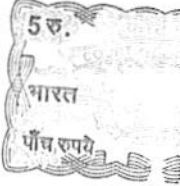 5 रु.
भारत
पाँच रुपये